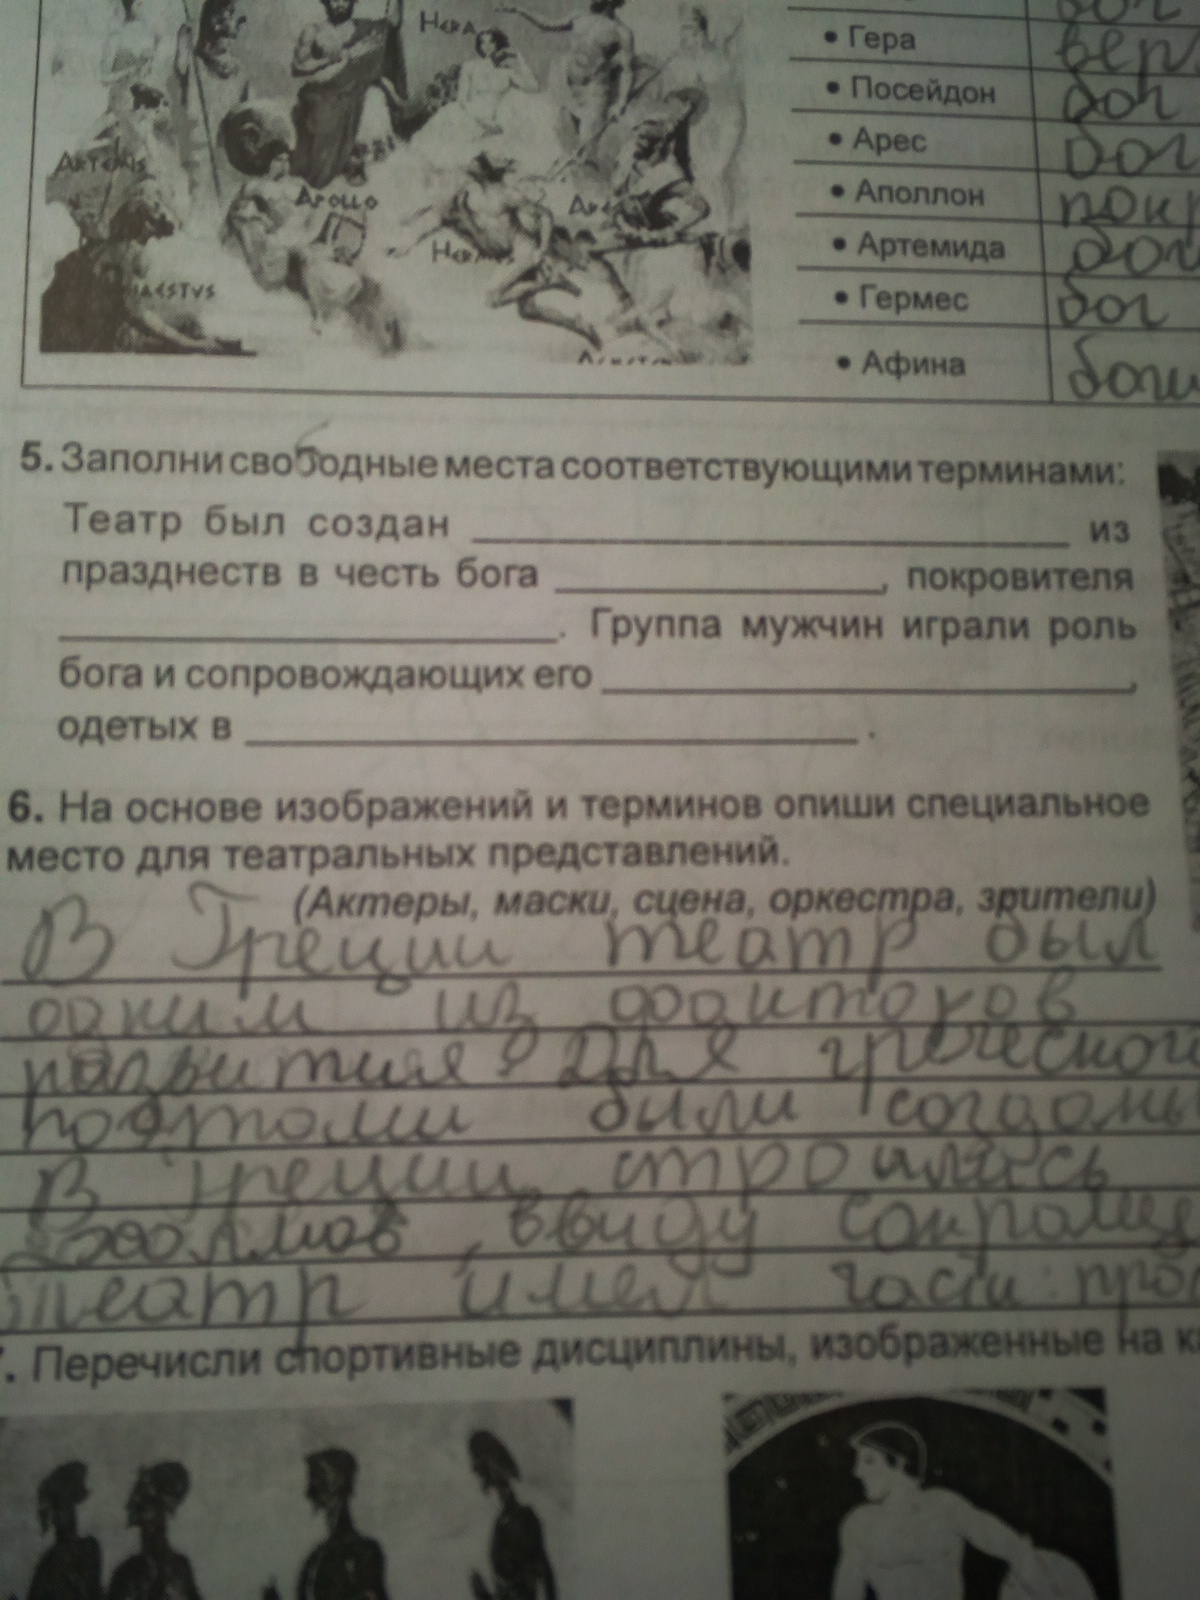 HERA
ARTEMIS
APOLLO
HERMES
AESTVS
• Гера
• Посейдон бог
• Арес
• Аполлон
• Артемида
• Гермес бог
• Афина
5. Заполни свободные места соответствующими терминами:
Театр был создан ____ из
празднеств в честь бога ____, покровителя
____. Группа мужчин играли роль
бога и сопровождающих его ____,
одетых в ____.
6. На основе изображений и терминов опиши специальное
место для театральных представлений.
(Актеры, маски, сцена, оркестра, зрители)
В Греции театр был
одним из факторов
развития. Для
поэтами были
В Греции строились
ввиду
театр имел части:
. Перечисли спортивные дисциплины, изображенные на